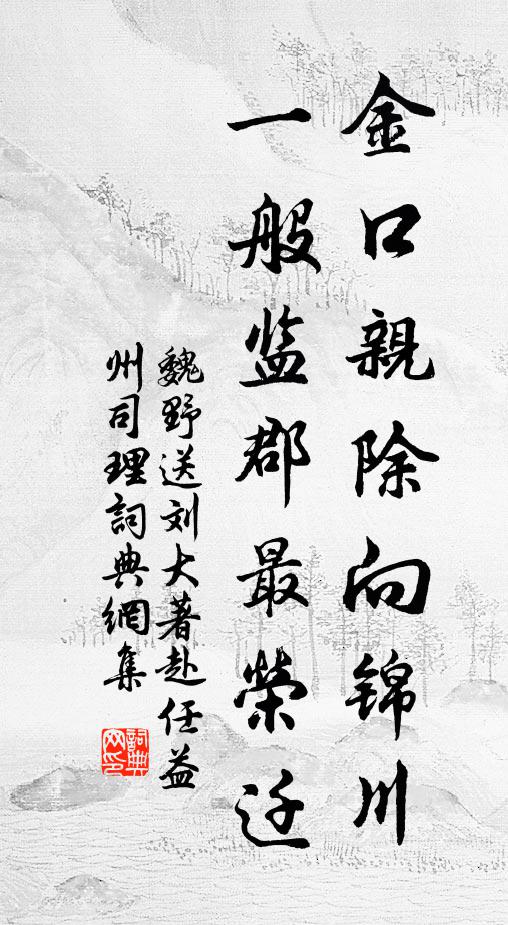 金口親除向锦川
一般监郡最榮迁
魏野送刘大著赴任益
州司理詞典網集
詞典网印